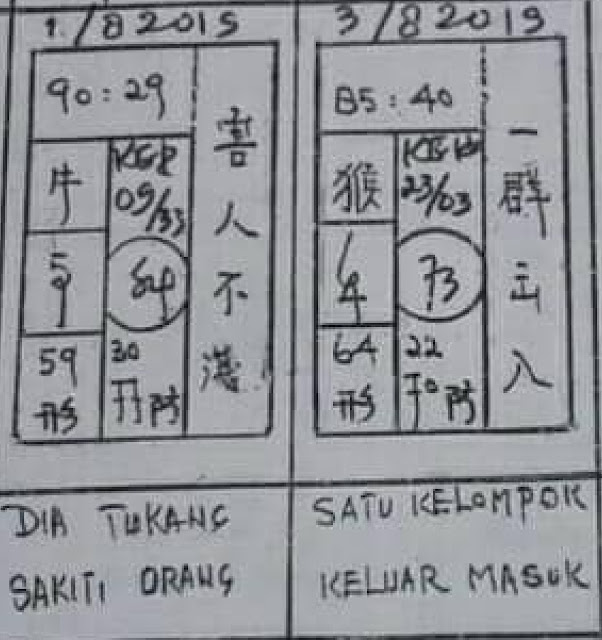 1/8 2019
90 : 29
牛
KEP
09/33
5
9
84
59
形
30
开 防
害人不浅
DIA TUKANG
SAKITI ORANG
3/8 2019
B5 : 40
猴
KEP
23/03
73
64
形
22
开 防
一群出入
SATU KELOMPOK
KELUAR MASUK